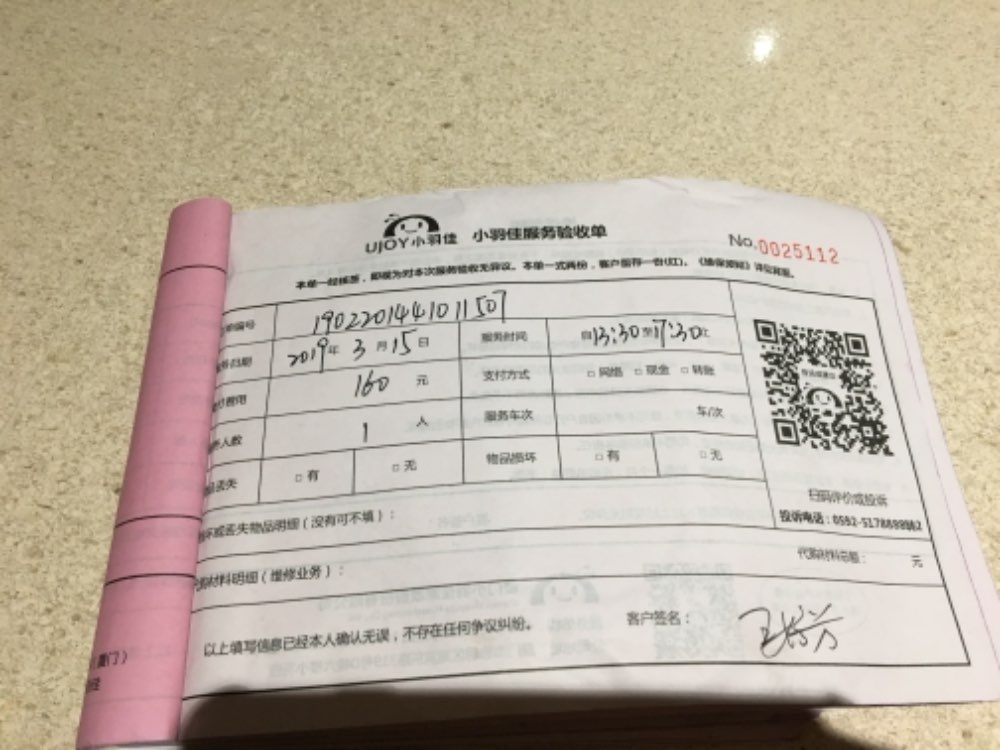 UJOY小羽佳 小羽佳服务验收单
No.0025112
本单一经核签，即视为对本次服务验收无异议。本单一式两份，客户留存一份(红)。《维保须知》详见背面。
单编号 1902201441011507
务日期 2019年3月15日 服务时间 自13:30至17:30止
费用 160 元 支付方式 □ 网络 □ 现金 □ 转账
务人数 1 人 服务车次 车/次
品丢失 □ 有 □ 无 物品损坏 □ 有 □ 无
扫码评价或投诉
投诉电话：0592-517888
坏或丢失物品明细（没有可不填）：
材料明细（维修业务）： 代购材料总额： 元
以上填写信息已经本人确认无误，不存在任何争议纠纷。 客户签名：
厦门）